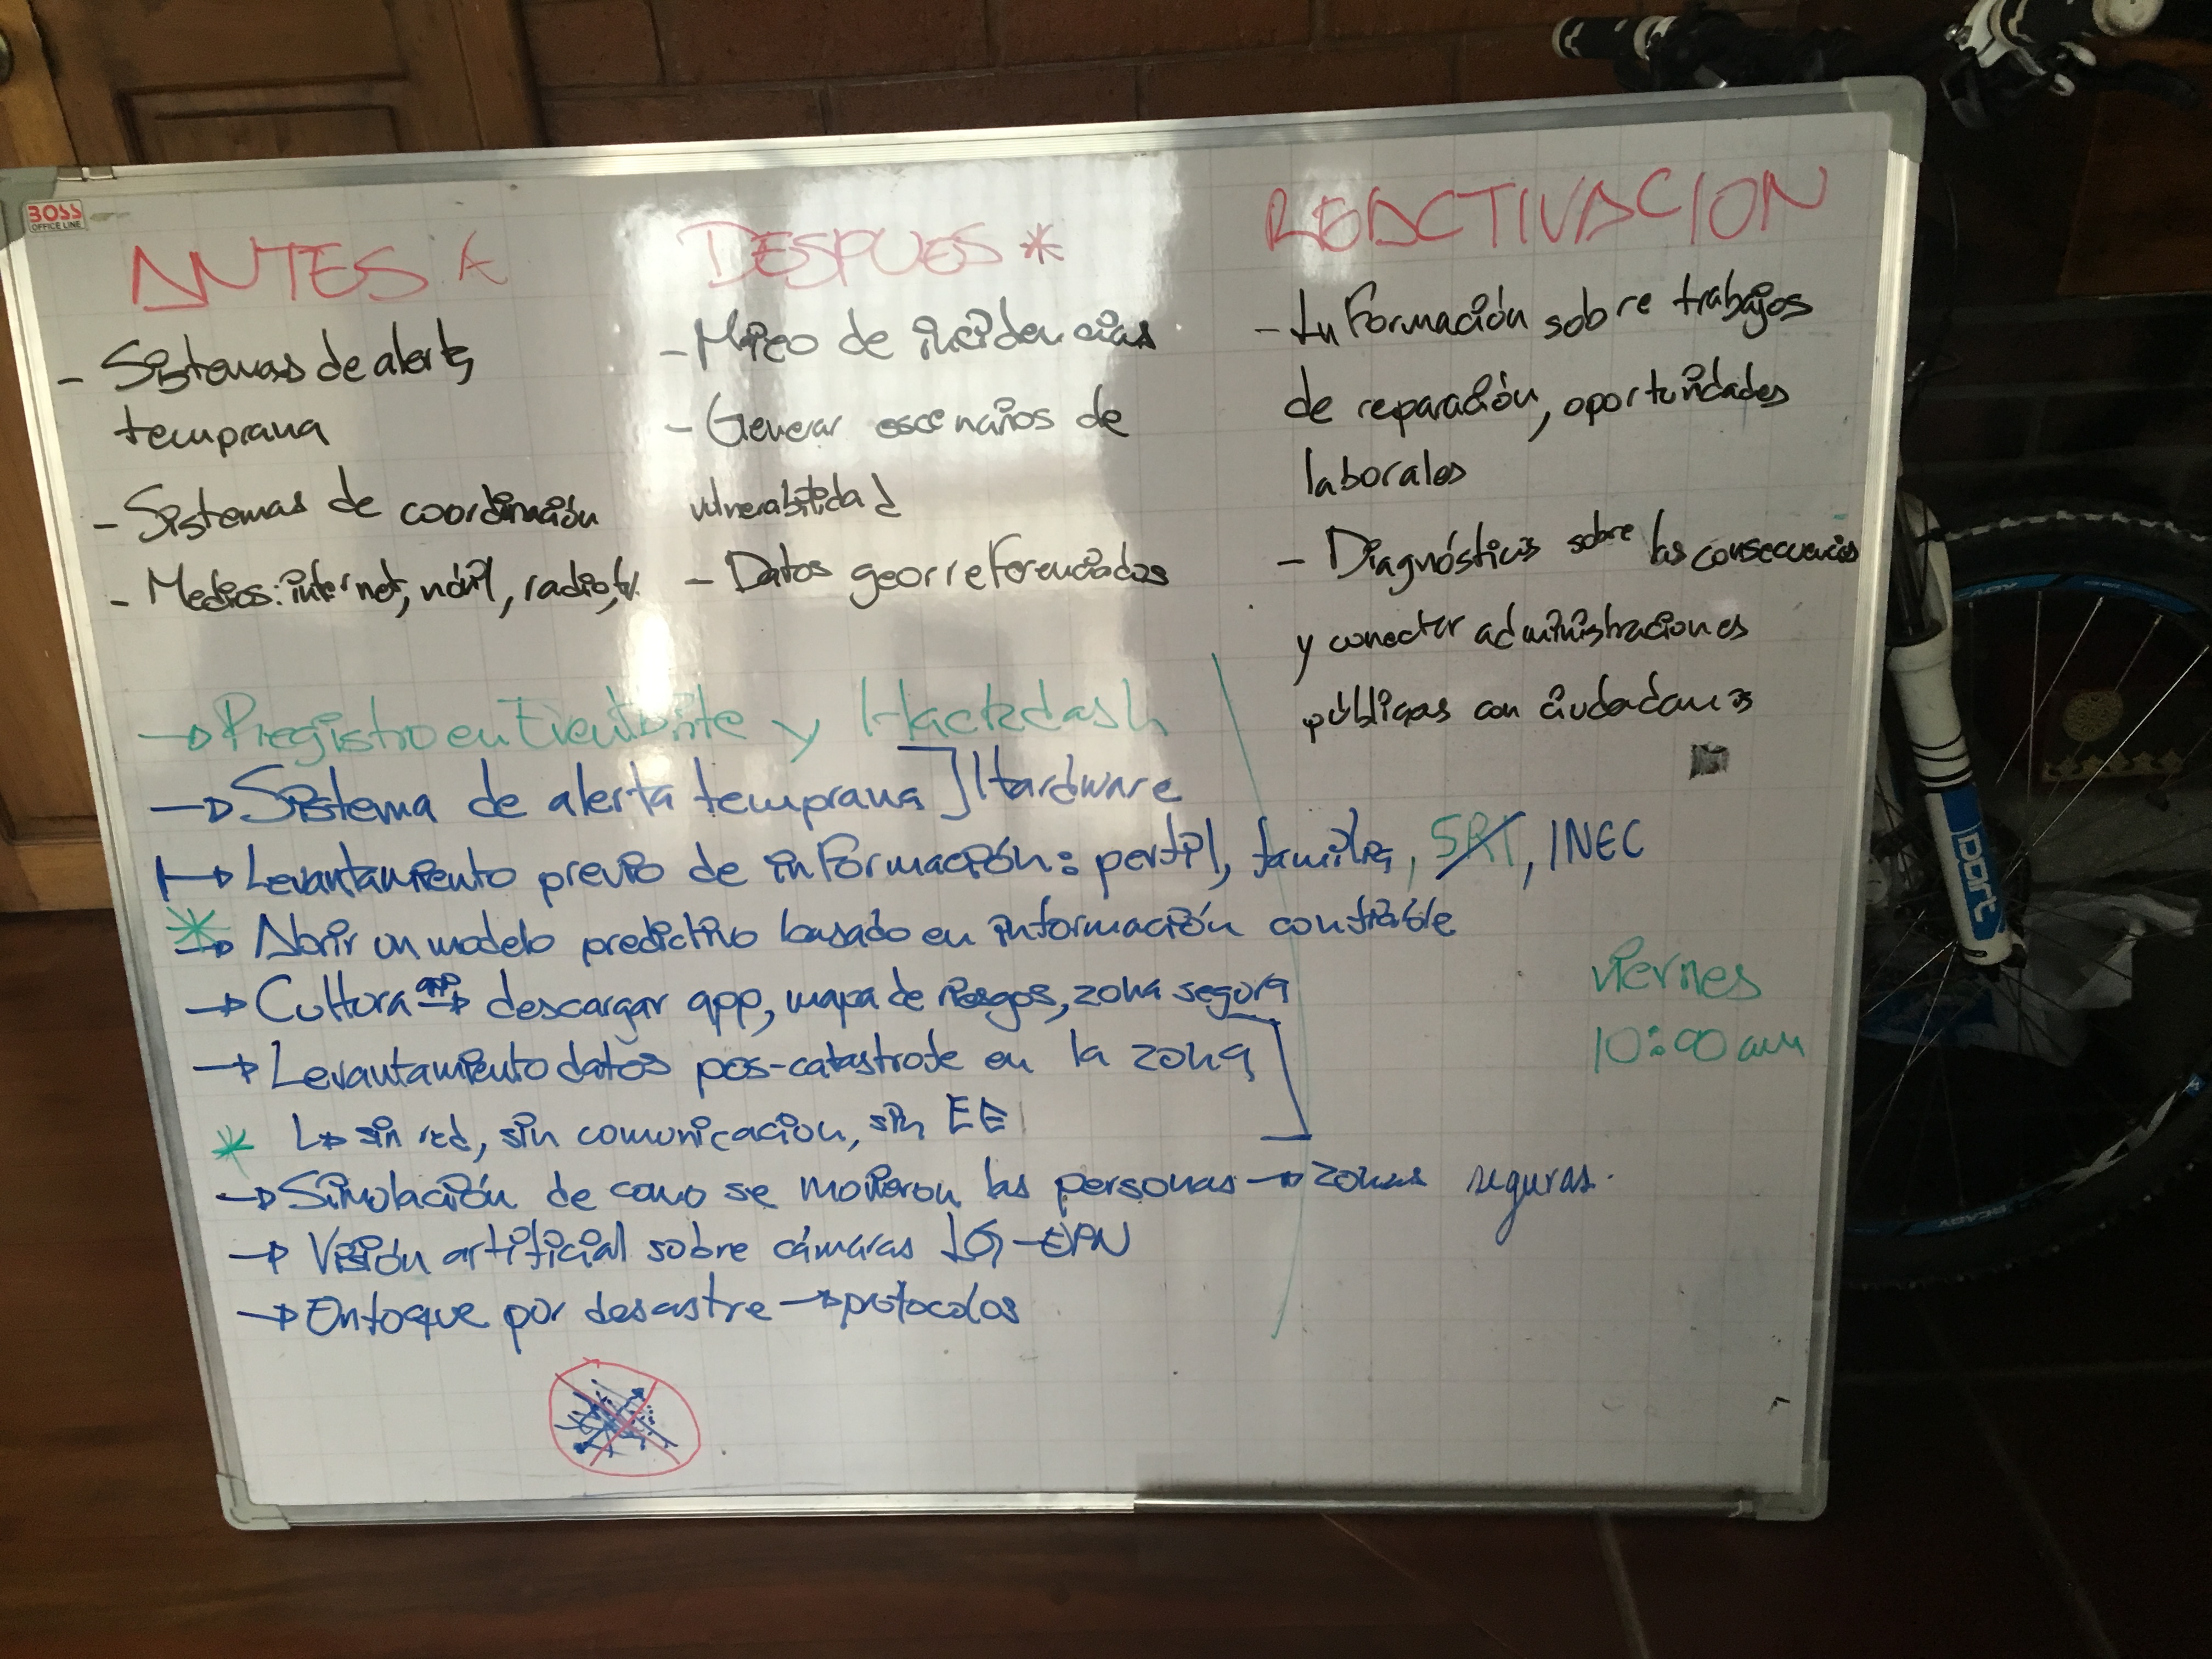 BOSS
OFFICE LINE
ANTES
- Sistemas de alerta
temprana
- Sistemas de coordinación
- Medios: internet, móvil, radio, tv
DESPUES *
- de incidencias
- Generar escenarios de
vulnerabilidad
- Datos georreferenciados
REACTIVACION
- Información sobre trabajos
de reparación, oportunidades
laborales
- Diagnósticos sobre las consecuencias
y conectar administraciones
públicas con ciudadanos
→ Registro en Eventbrite y Hackdash
→ Sistema de alerta temprana ] Hardware
→ Levantamiento previo de información: perfil, familia, SRI, INEC
* → Abrir un modelo predictivo basado en información confiable
→ Cultura app → descargar app, mapa de riesgos, zona segura
→ Levantamiento datos pos-catastrofe en la zona
* ↳ sin red, sin comunicacion, sin EE
→ Simulación de como se movieron las personas → zonas seguras.
→ Visión artificial sobre cámaras IG-EPN
→ Enfoque por desastre → protocolos
viernes
10:00 am
Dart
READY